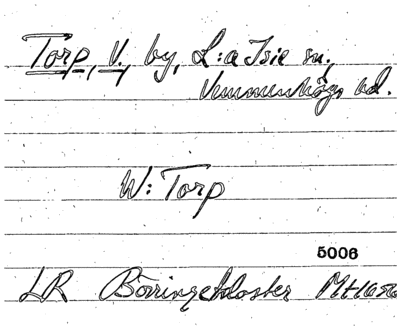 Torp, V., by, L:a Isie sn,
Vemmenhögs hd.
W: Torp
5006
LR Börringekloster